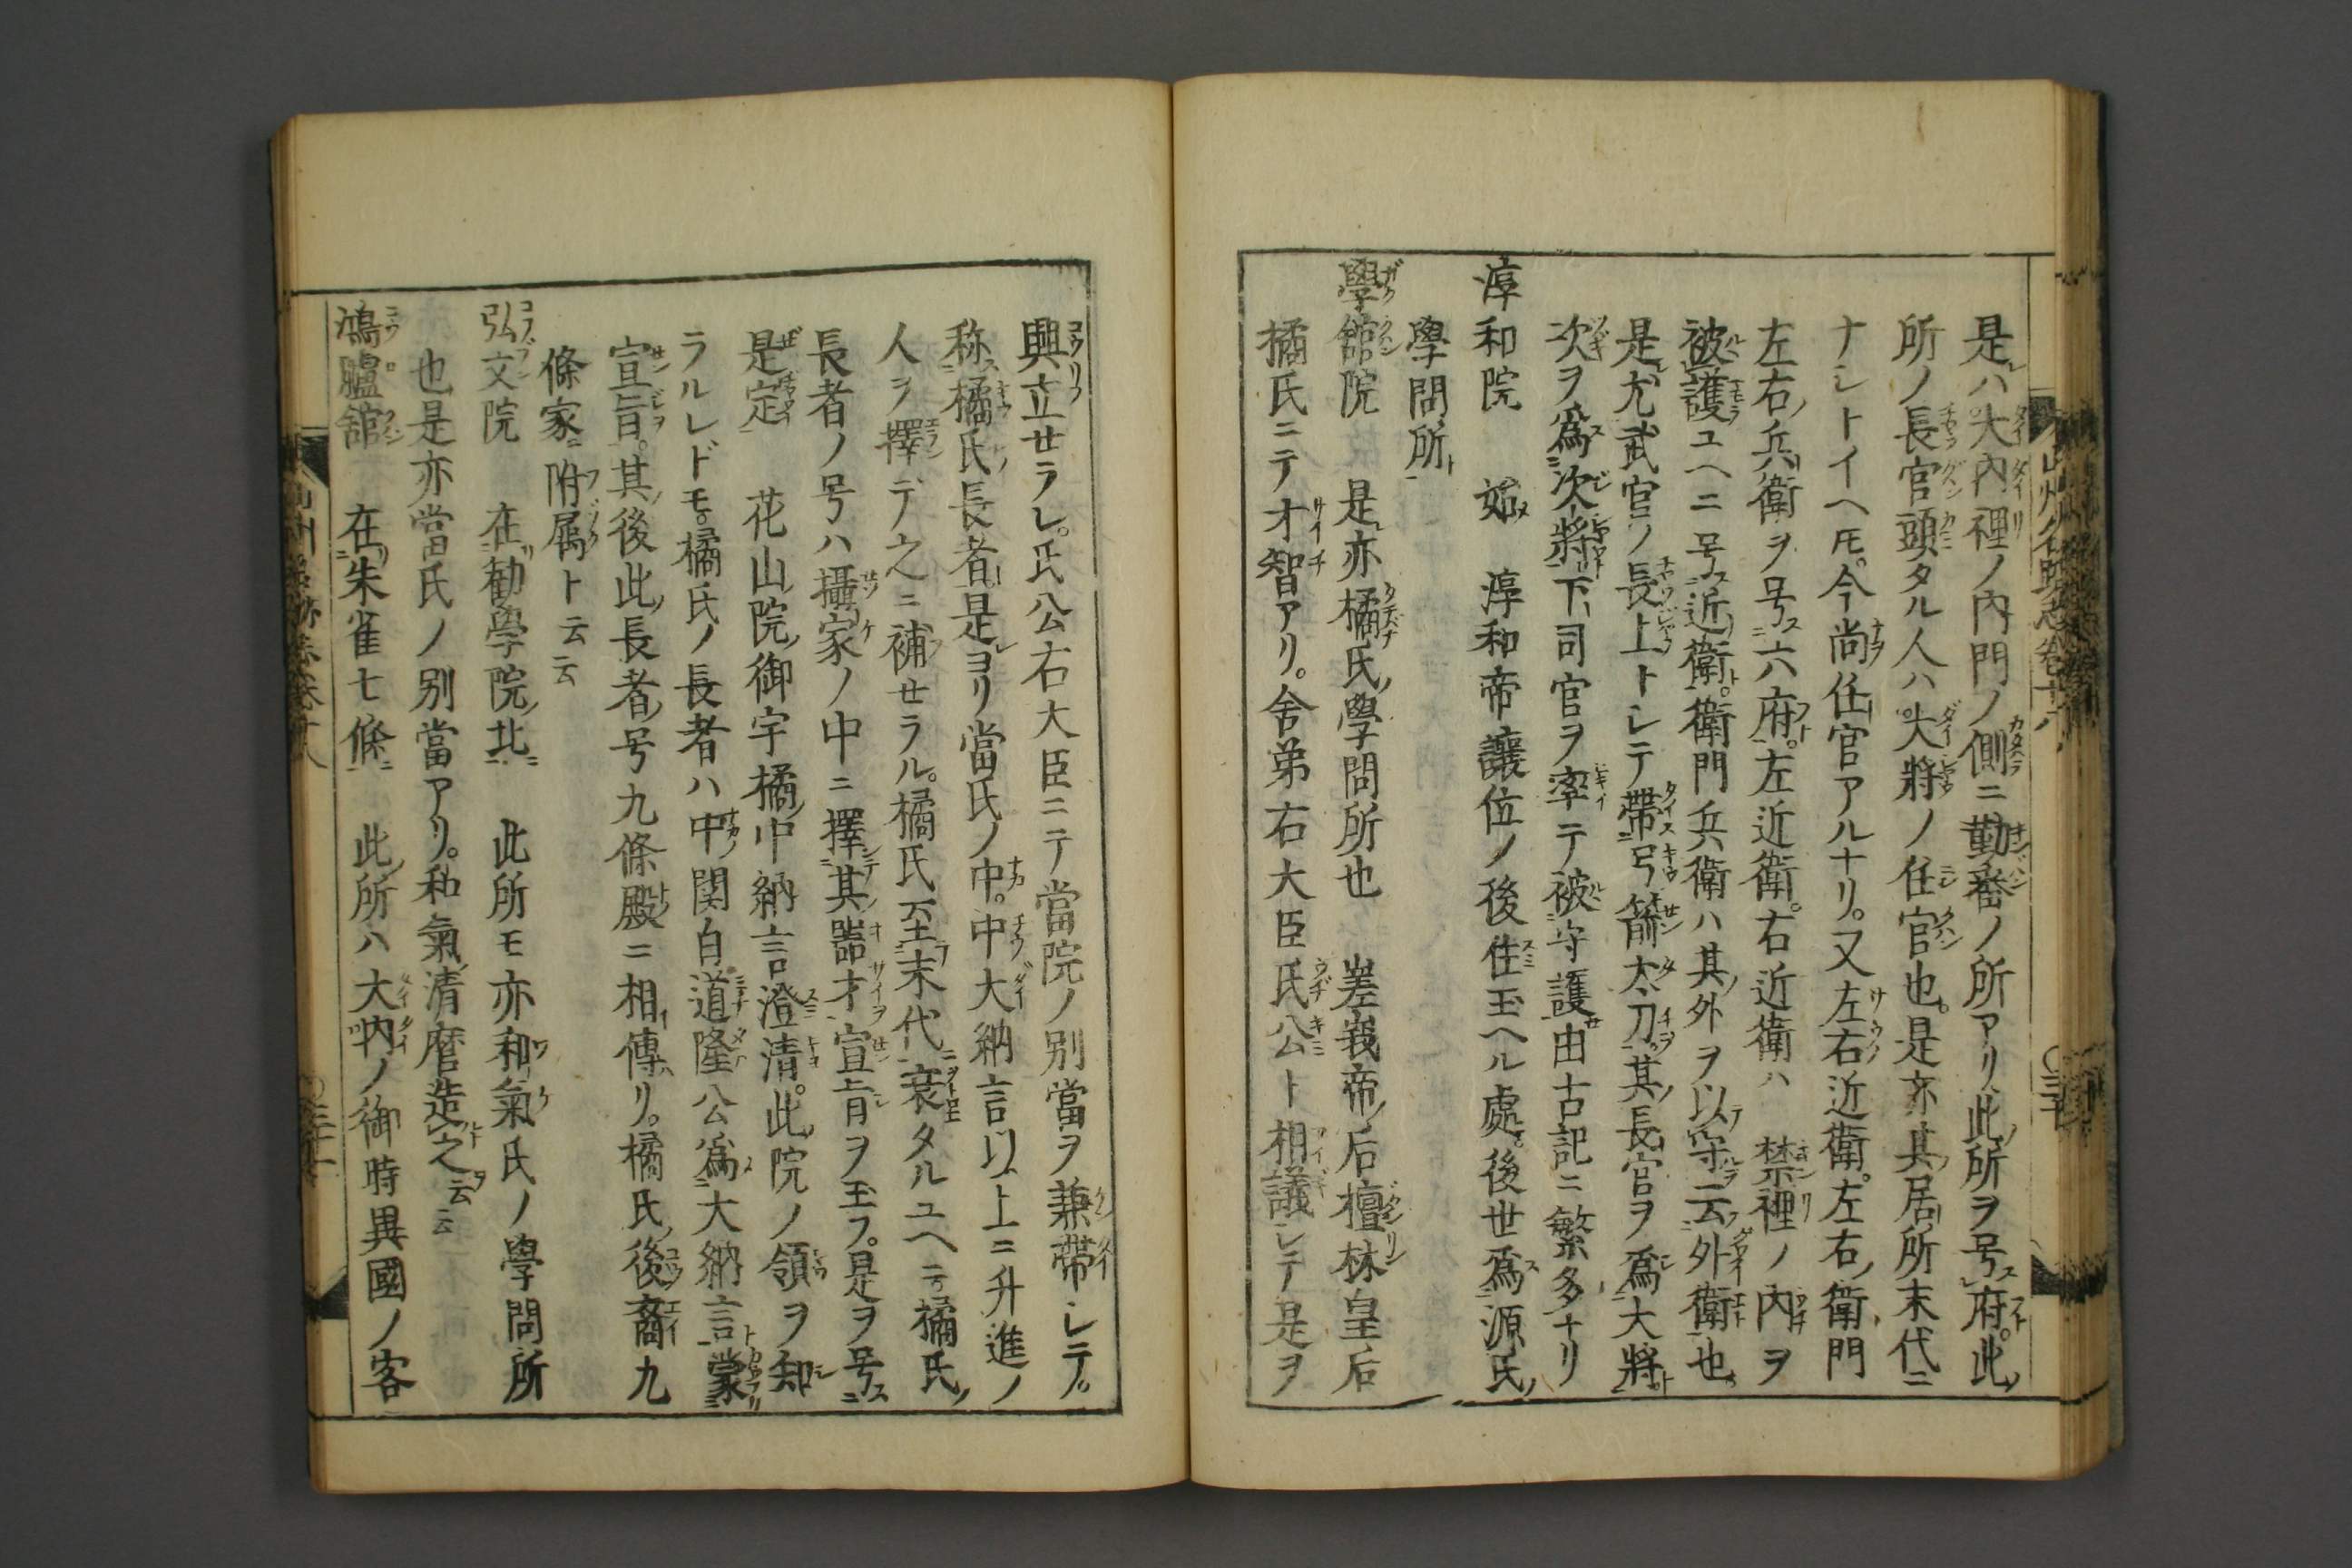 是ハ大内裡ノ内門ノ側ニ勤番ノ所アリ此所ヲ号府此
所ノ長官頭タル人ハ大將ノ任官也是亦其居所末代ニ
ナシトイヘ𪜈今尚任官アルナリ又左右近衛左右衛門
左右兵衛ヲ号六府左近衛右近衛ハ 禁裡ノ内ヲ
被護ユヘニ号近衛衛門兵衛ハ其外ヲ以守云外衛也
是尤武官ノ長上トシテ帶弓箭太刀其長官ヲ爲大將
次ヲ爲次將下司官ヲ率テ被守護由古記ニ繁多ナリ
淳和院 始 淳和帝讓位ノ後住玉ヘル處後世爲源氏
學問所
學舘院 是亦橘氏學問所也 嵯峩帝后檀林皇后
橘氏ニテ才智アリ舍弟右大臣氏公ト相議シテ是ヲ
興立セラレ氏公右大臣ニテ當院ノ別當ヲ兼帶シテ
称橘氏長者是ヨリ當氏ノ中中大納言以上ニ升進ノ
人ヲ擇デ之ニ補セラル橘氏至末代衰タルユヘニ橘氏
長者ノ号ハ攝家ノ中ニ擇其器才宣旨ヲ玉フ是ヲ号
是定 花山院御宇橘中納言澄清此院ノ領ヲ知
ラルレドモ橘氏ノ長者ハ中関白道隆公爲大納言蒙
宣旨其後此長者号九條殿ニ相傳リ橘氏後裔九
條家ニ附属ト云云
弘文院 在勧學院北 此所モ亦和氣氏ノ學問所
也是亦當氏ノ別當アリ和氣清麿造之云云
鴻臚舘 在朱雀七條 此所ハ大内ノ御時異國ノ客